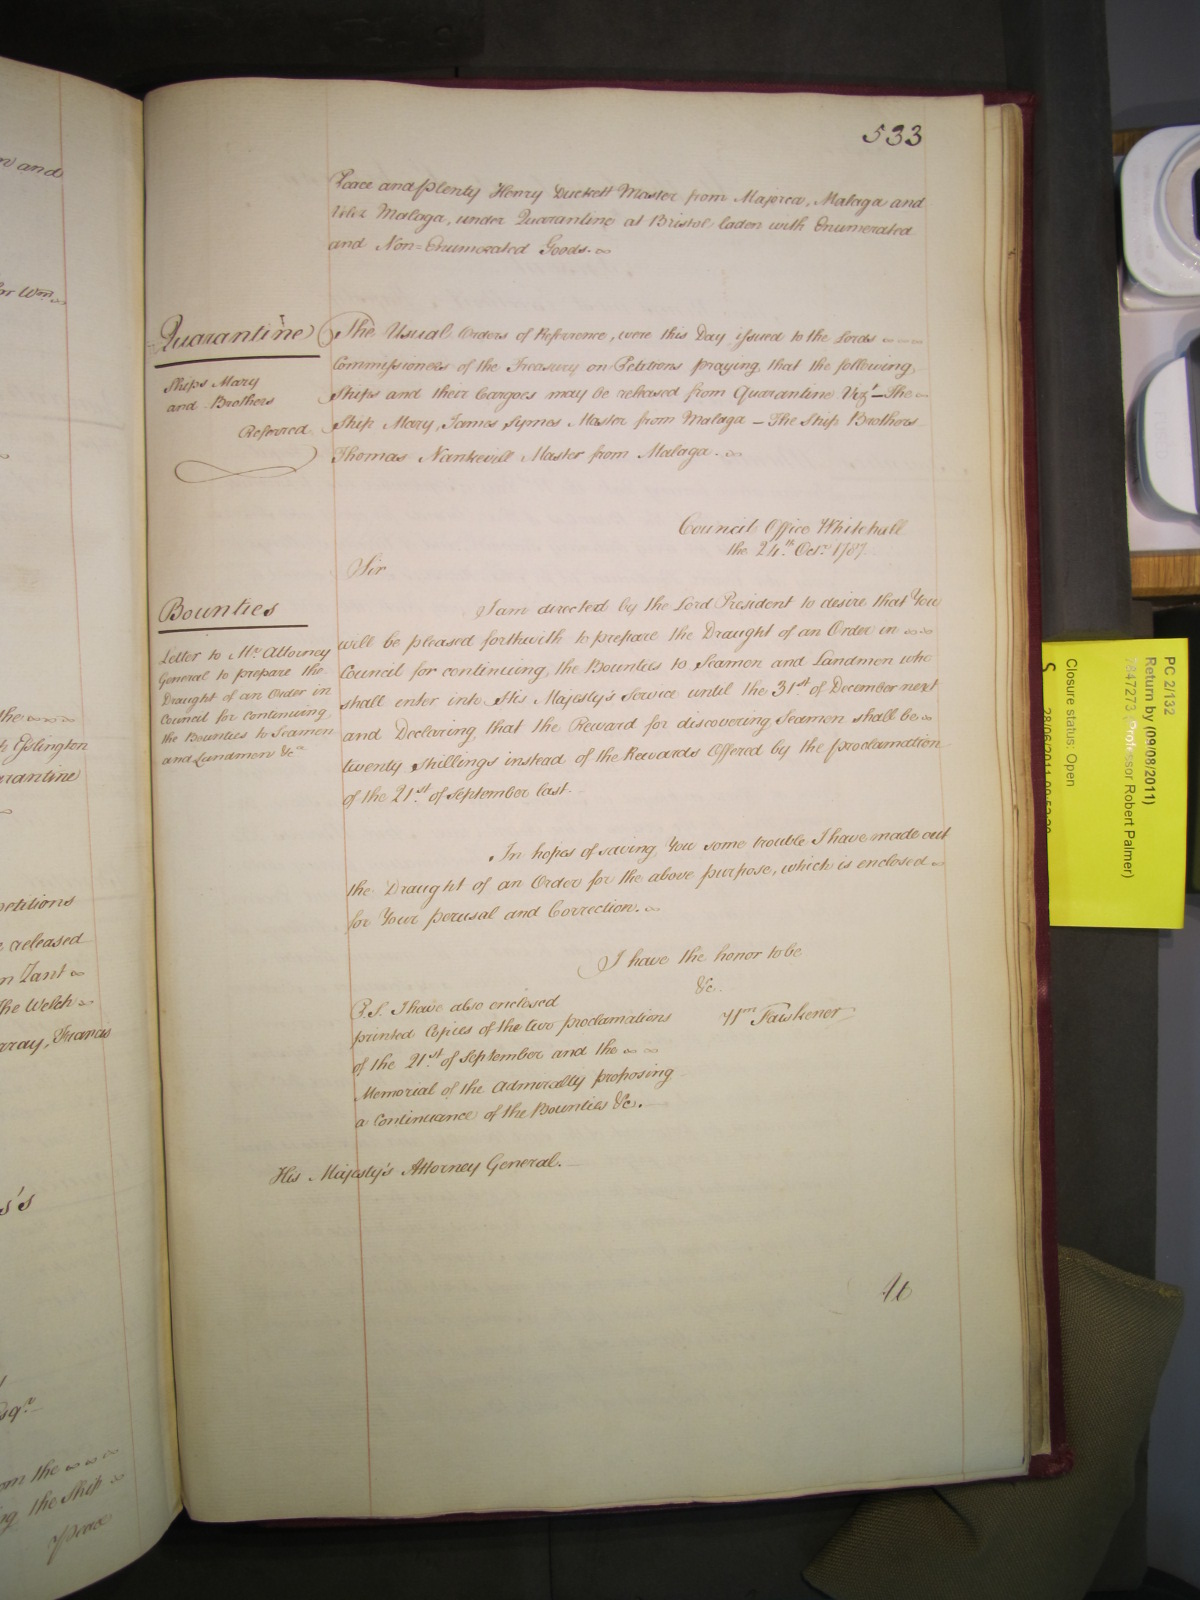 533
Peace and plenty Henry Duckett Master from Majorca, Malaga and
Velez Malaga, under Quarantine at Bristol laden with Enumerated
and Non=Enumerated Goods.
Quarantine
Ships Mary
and Brothers
Referred
The Usual Orders of Reference, were this Day issued to the Lords
Commissioners of the Treasury on Petitions praying that the following
Ships and their Cargoes may be released from Quarantine Vizt. The
Ship Mary, James Symes Master from Malaga – The Ship Brothers
Thomas Nankevell Master from Malaga.
Council Office Whitehall
the 24th. Octr. 1787
Sir
Bounties
Letter to Mr. Attorney
General to prepare the
Draught of an Order in
Council for continuing
the Bounties to Seamen
and Landmen &ca
I am directed by the Lord President to desire that You
will be pleased forthwith to prepare the Draught of an Order in
Council for continuing, the Bounties to Seamen and Landmen who
shall enter into His Majesty's Service until the 31st of December next
and Declaring that the Reward for discovering Seamen shall be
twenty Shillings instead of the Rewards Offered by the proclamation
of the 21st. of September last.
In hopes of saving You some trouble I have made out
the Draught of an Order for the above purpose, which is enclosed
for Your perusal and Correction.
I have the honor to be
&c.
Wm Fawkener
P.S. I have also enclosed
printed Copies of the two proclamations
of the 21st. of September and the
Memorial of the Admiralty proposing
a Continuance of the Bounties &c.
His Majesty's Attorney General.
At
and
for Wm.
the
Islington
Quarantine
petitions
released
Zant
The Welch
Francis
Esqr.
from the
the Ship
Peace
PC 2/132
Return by (09/08/2011)
7847273 (Professor Robert Palmer)
Closure status: Open
S